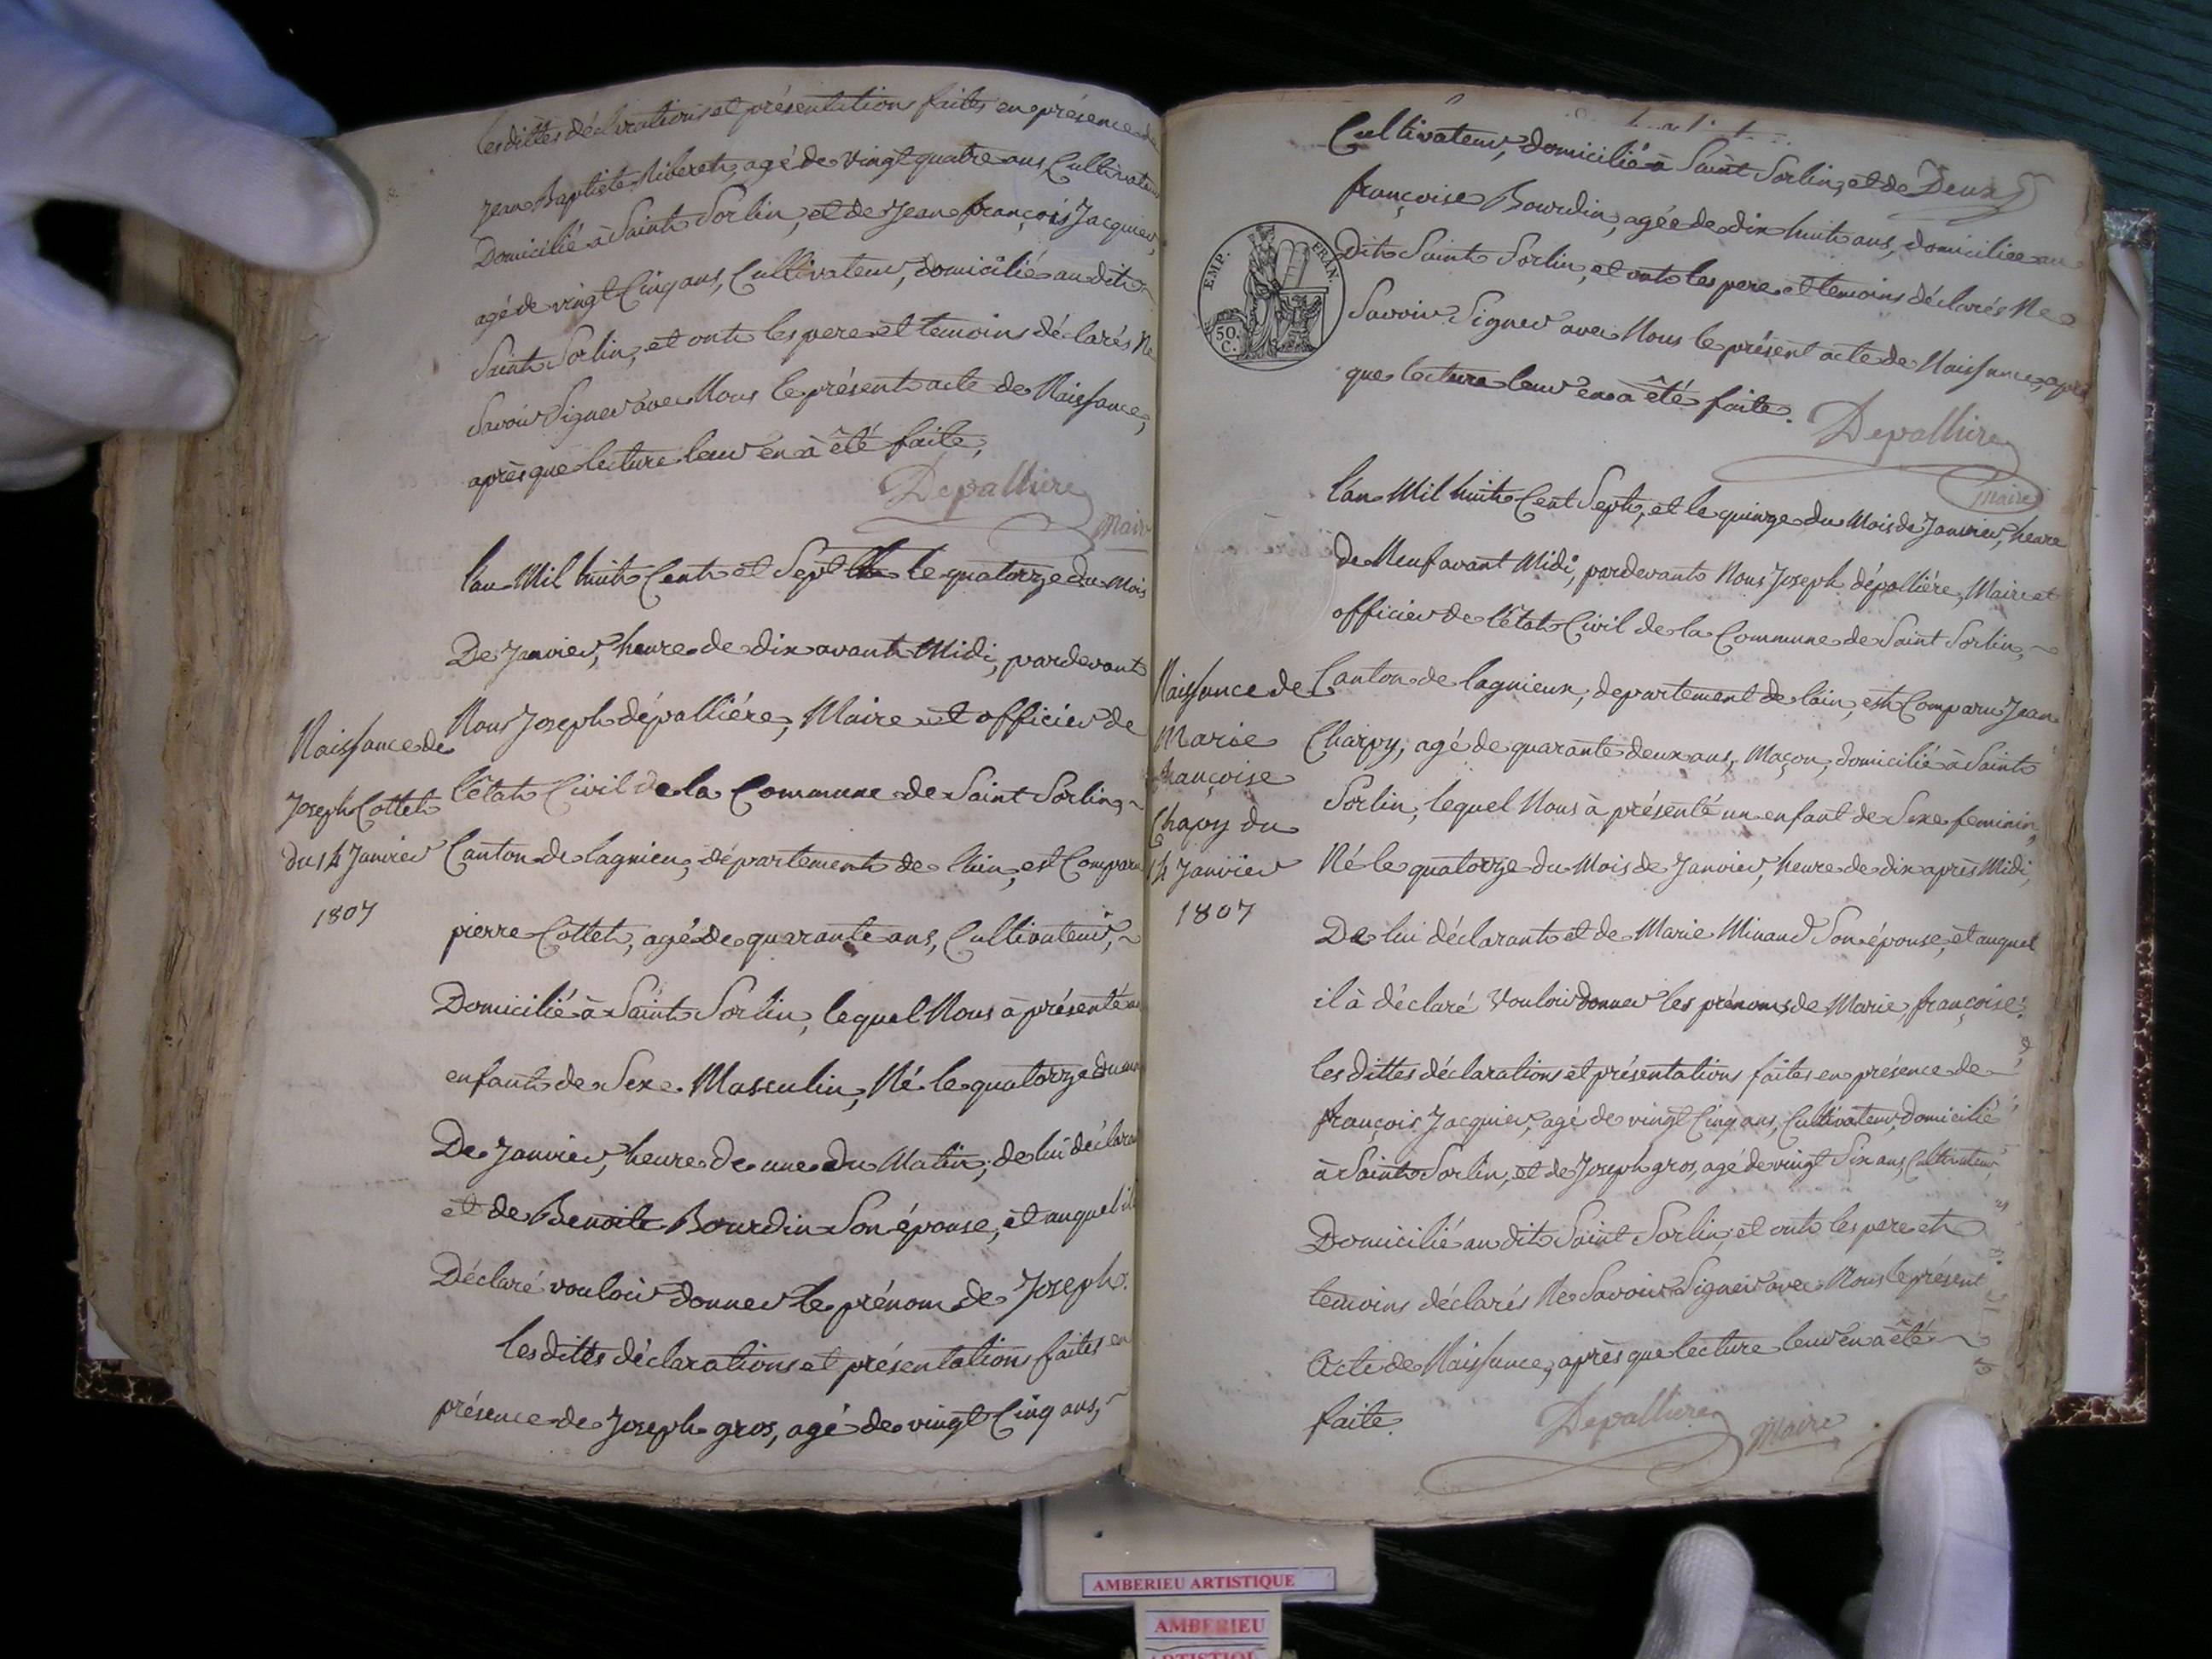 les dittes déclarations et présentations faites en présence de
Jean Baptiste Niberet, agé de vingt quatre ans Cultivateur
Domicilié à Saint Sorlin, et de Jean françois Jacquier,
agé de vingt Cinq ans, Cultivateur, domicilié au dit
Saint Sorlin, et ont les pere et temoins déclarés Ne
Savoir Signer avec Nous le présent acte de Naissance,
après que lecture leur en à été faite,
Depalliere
Maire
l'an Mil huit Cent et Sept le quatorze du Mois
De Janvier, heure de dix avant Midi, pardevant
Nous Joseph dépalliére, Maire et officier de
l'état Civil de la Commune de Saint Sorlin,
Canton de lagnieu, département de l'ain, est Comparu
pierre Cottet, agé de quarante ans, Cultivateur,
Domicilié à Saint Sorlin, lequel Nous à présenté un
enfant de Sexe Masculin, Né le quatorze du mois
De Janvier, heure de une du Matin, de lui déclarant
et de Benoite Bourdin Son épouse, et auquel il à
Déclaré vouloir donner le prénom de Joseph.
les dittes déclarations et présentations faites en
présence de Joseph gros, agé de vingt Cinq ans,
Naissance de
Joseph Cottet
du 14 Janvier
1807
Cultivateur, domicilié à Saint Sorlin, et de Deux
françoise Bourdin, agée de dix huit ans, domiciliée au
Dit Saint Sorlin, et ont les pere et temoins déclarés Ne
Savoir Signer avec Nous le présent acte de Naissance, après
que lecture leur en à été faite.
EMP. FRAN.
50.
C.
Depalliere
Maire
l'an Mil huit Cent Sept, et le quinze du Mois de Janvier, heure
de Neuf avant Midi, pardevant Nous Joseph dépalliére, Maire et
officier de l'état Civil de la Commune de Saint Sorlin,
Canton de lagnieux, departement de lain, est Comparu Jean
Charpy, agé de quarante deux ans, Maçon, domicilié à Saint
Sorlin, lequel Nous à présenté un enfant de Sexe feminin,
Né le quatorze du Mois de Janvier, heure de dix après Midi,
De lui déclarant et de Marie Minand Son épouse, et auquel
il à déclaré vouloir donner les prénoms de Marie françoise.
les dittes déclarations et présentations faites en présence de
françois Jacquier, agé de vingt Cinq ans, Cultivateur, domicilié
à Saint Sorlin, et de Joseph gros, agé de vingt Six ans, Cultivateur,
Domicilié au dit Saint Sorlin, et ont les pere et
temoins déclarés Ne Savoir Signer avec Nous le présent
Acte de Naissance, après que lecture leur en à été
faite.
Depalliere Maire
Naissance de
Marie
françoise
Chapy du
14 Janvier
1807
AMBERIEU ARTISTIQUE
AMBERIEU
ARTISTIQUE